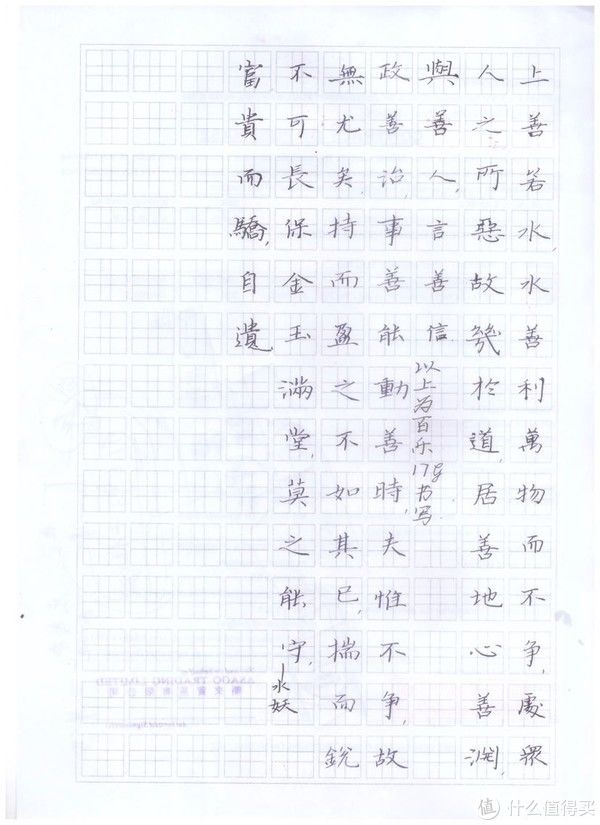 上善若水,水善利萬物而不争,處衆
人之所惡故幾於道,居善地心善渊,
與善人,言善信
以上为百乐17g书写
政善治,事善能動善時,夫惟不争,故
無尤矣,持而盈之不如其已,揣而銳
不可長保金玉滿堂,莫之能守,
—水妖
富貴而驕,自遺
值 什么值得买